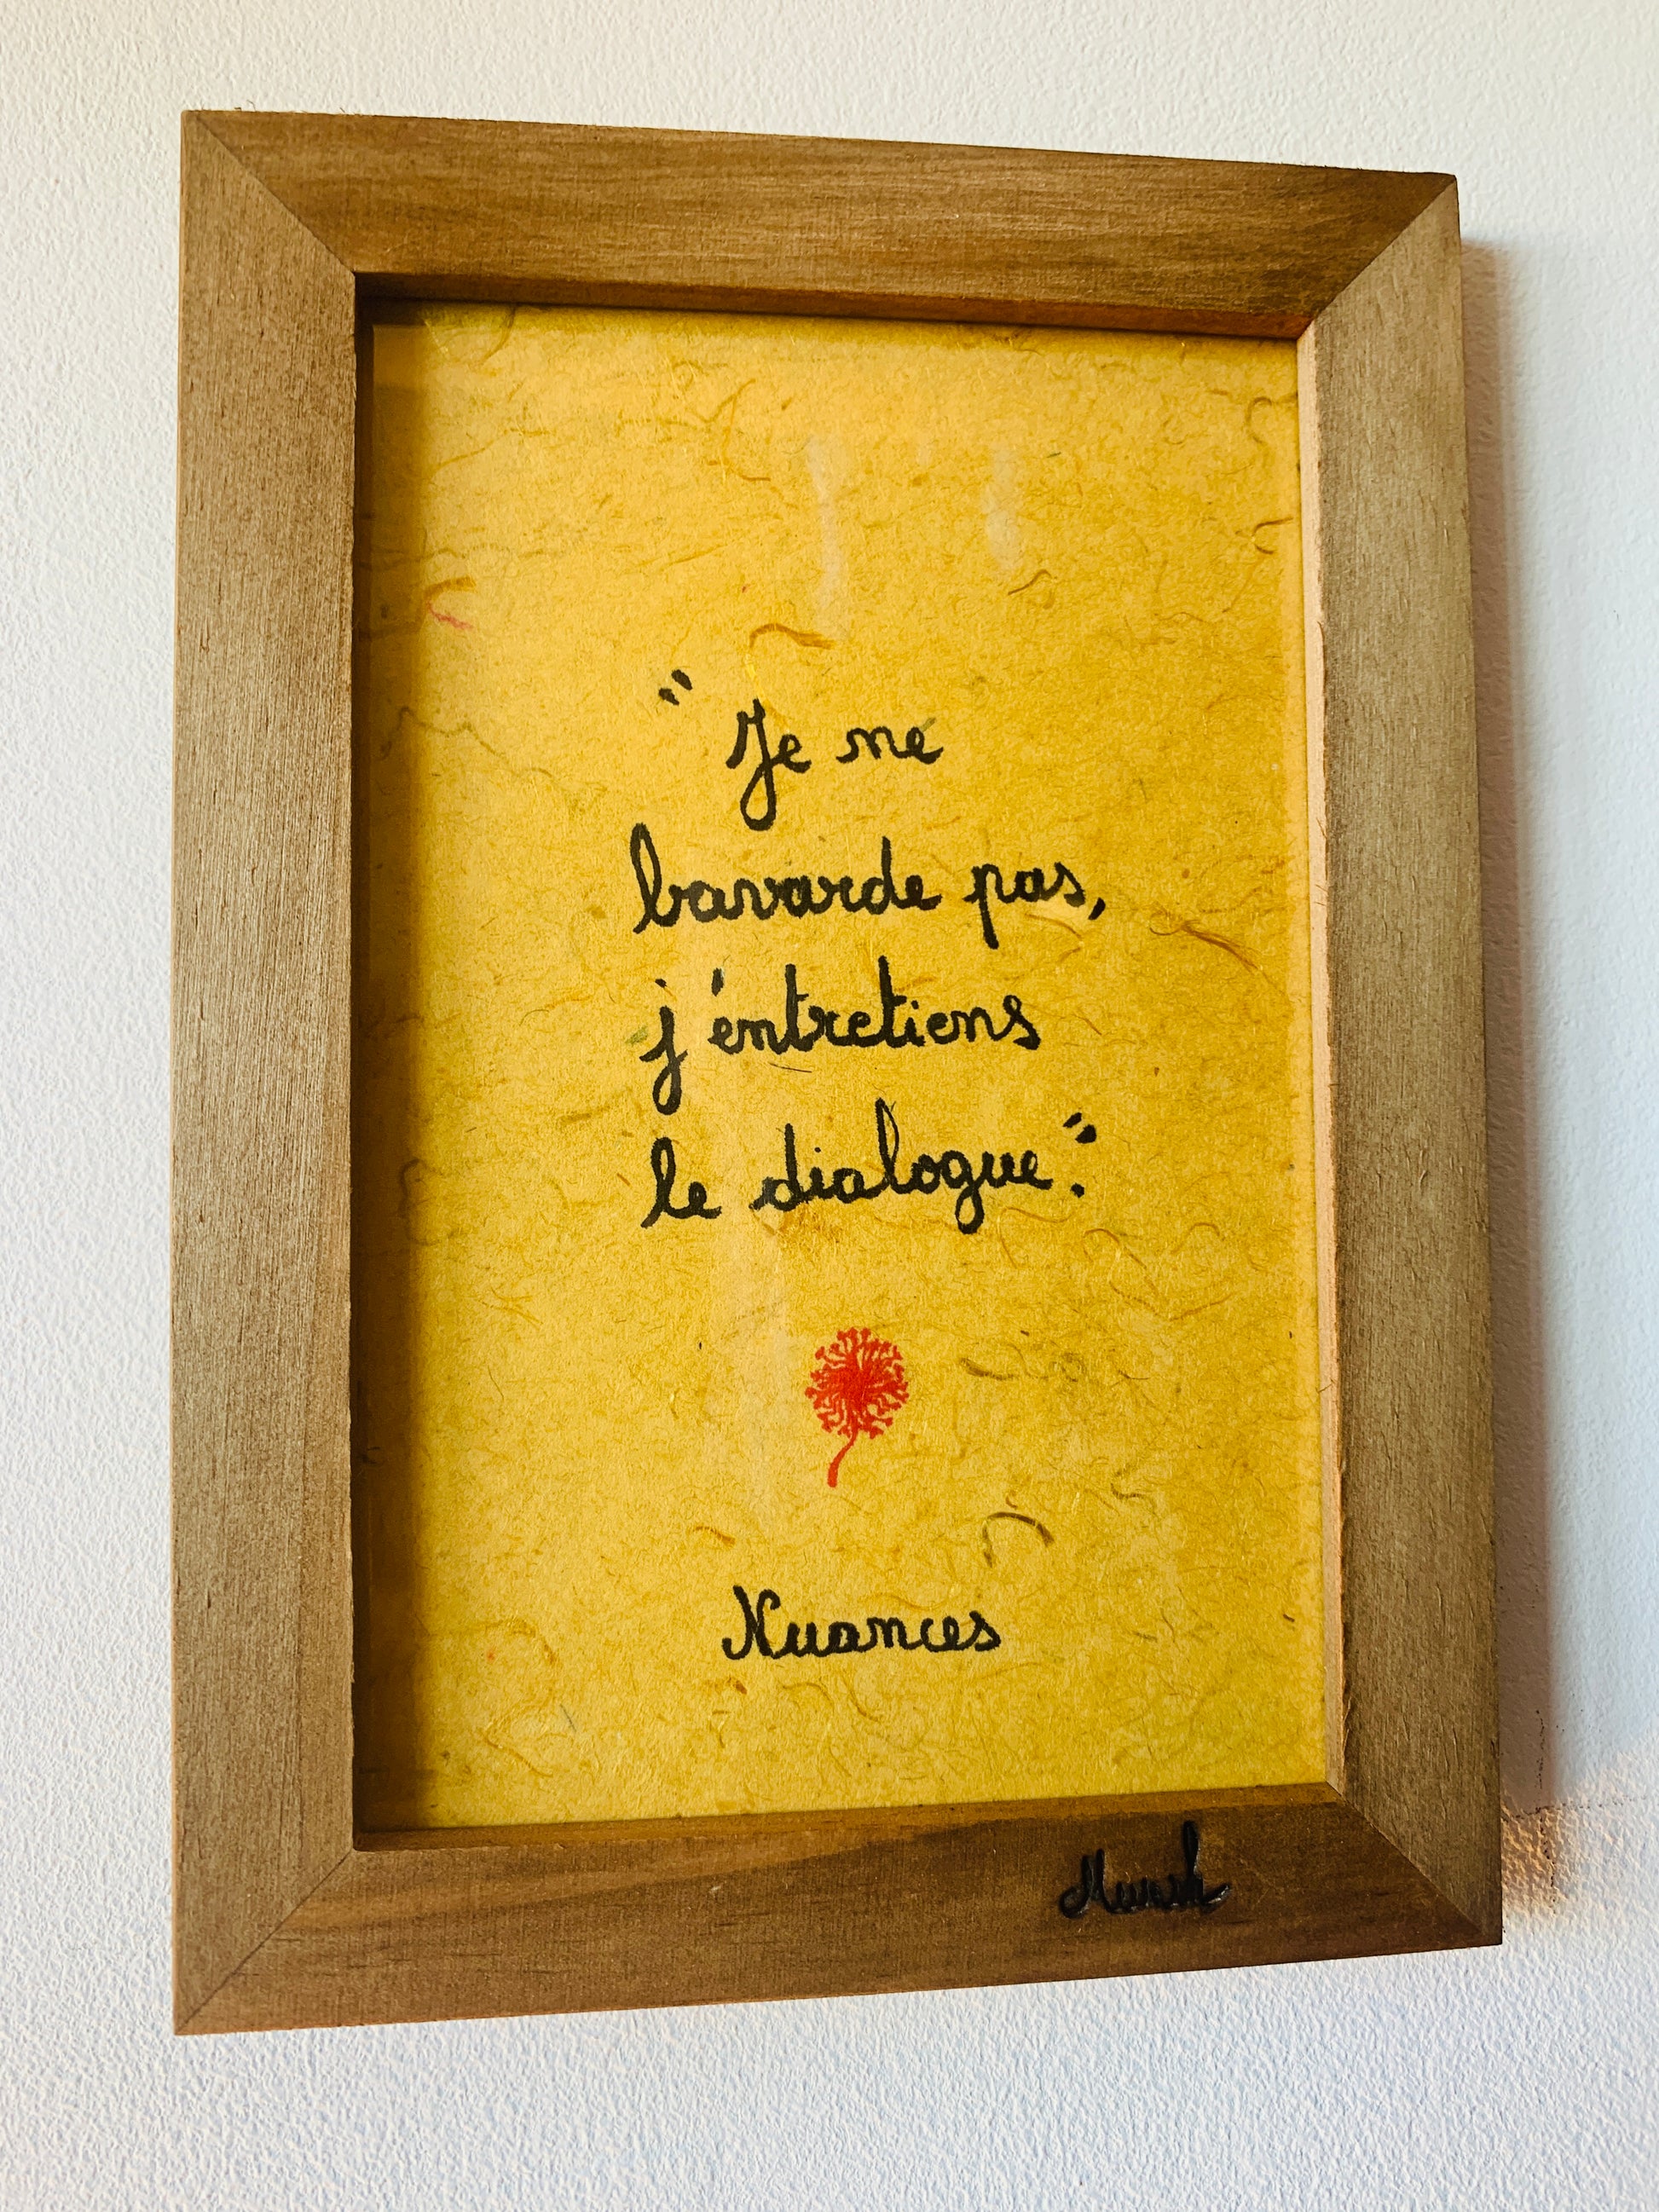 "Je ne
bavarde pas,
j'entretiens
le dialogue".
Nuances